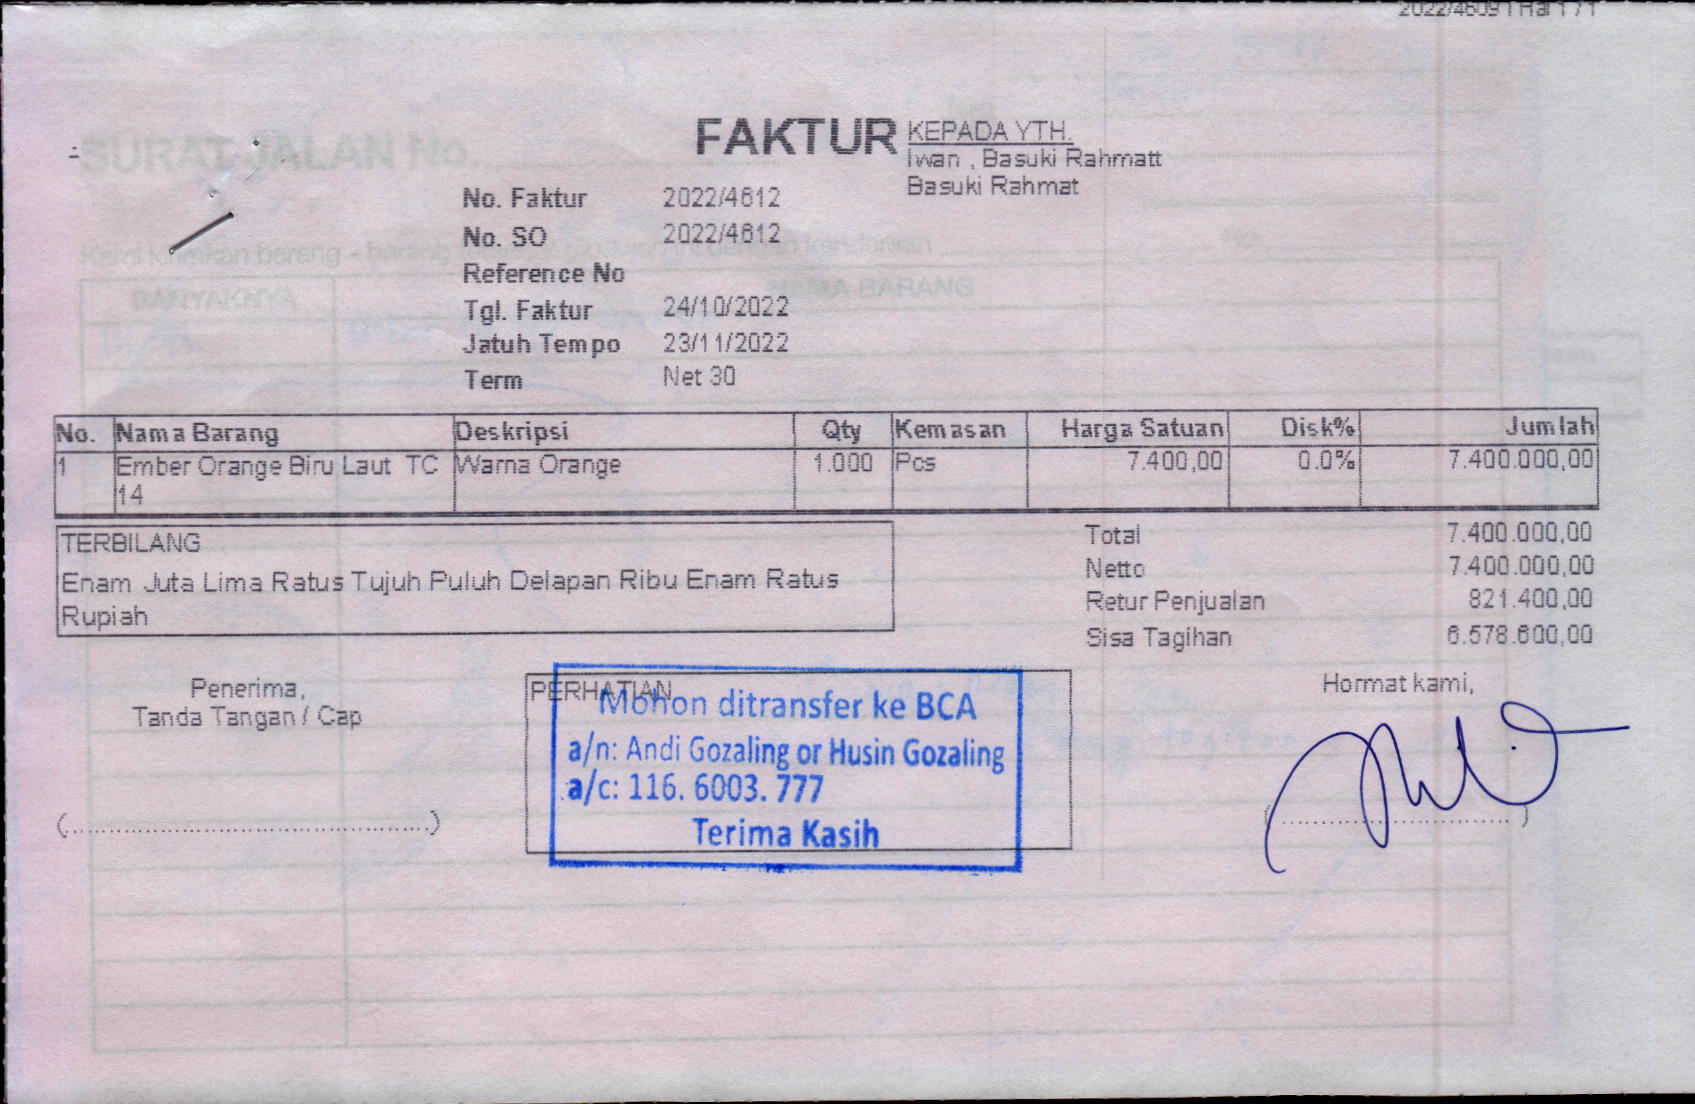 2022/4609 | Hal 1 / 1
FAKTUR
KEPADA YTH.
Iwan , Basuki Rahmatt
Basuki Rahmat
No. Faktur 2022/4612
No. SO 2022/4612
Reference No
Tgl. Faktur 24/10/2022
Jatuh Tempo 23/11/2022
Term Net 30
SURAT JALAN No.
BANYAKNYA NAMA BARANG
No. Nama Barang Deskripsi Qty Kemasan Harga Satuan Disk% Jumlah
1 Ember Orange Biru Laut TC Warna Orange 1.000 Pcs 7.400,00 0.0% 7.400.000,00
14
TERBILANG
Enam Juta Lima Ratus Tujuh Puluh Delapan Ribu Enam Ratus
Rupiah
Total 7.400.000,00
Netto 7.400.000,00
Retur Penjualan 821.400,00
Sisa Tagihan 6.578.600,00
Penerima,
Tanda Tangan / Cap
(................................................)
PERHATIAN
Mohon ditransfer ke BCA
a/n: Andi Gozaling or Husin Gozaling
a/c: 116. 6003. 777
Terima Kasih
Hormat kami,
(................................)